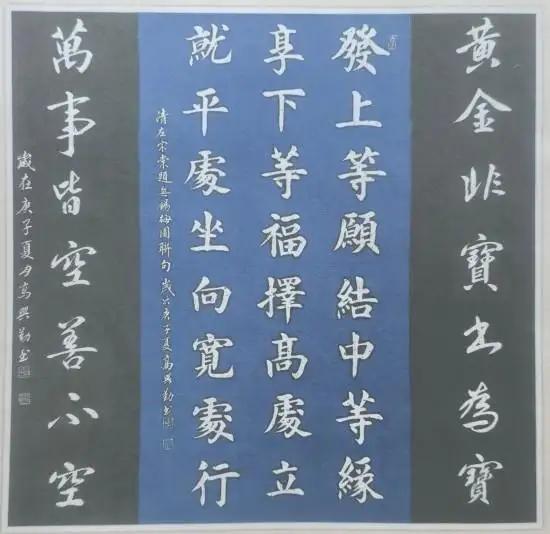 黃金非寶書為寶
發上等願結中等緣
享下等福擇高處立
就平處坐向寬處行
清左宗棠題無錫梅園聯句 歲次庚子夏高興勤書
萬事皆空善不空
歲在庚子夏月高興勤書